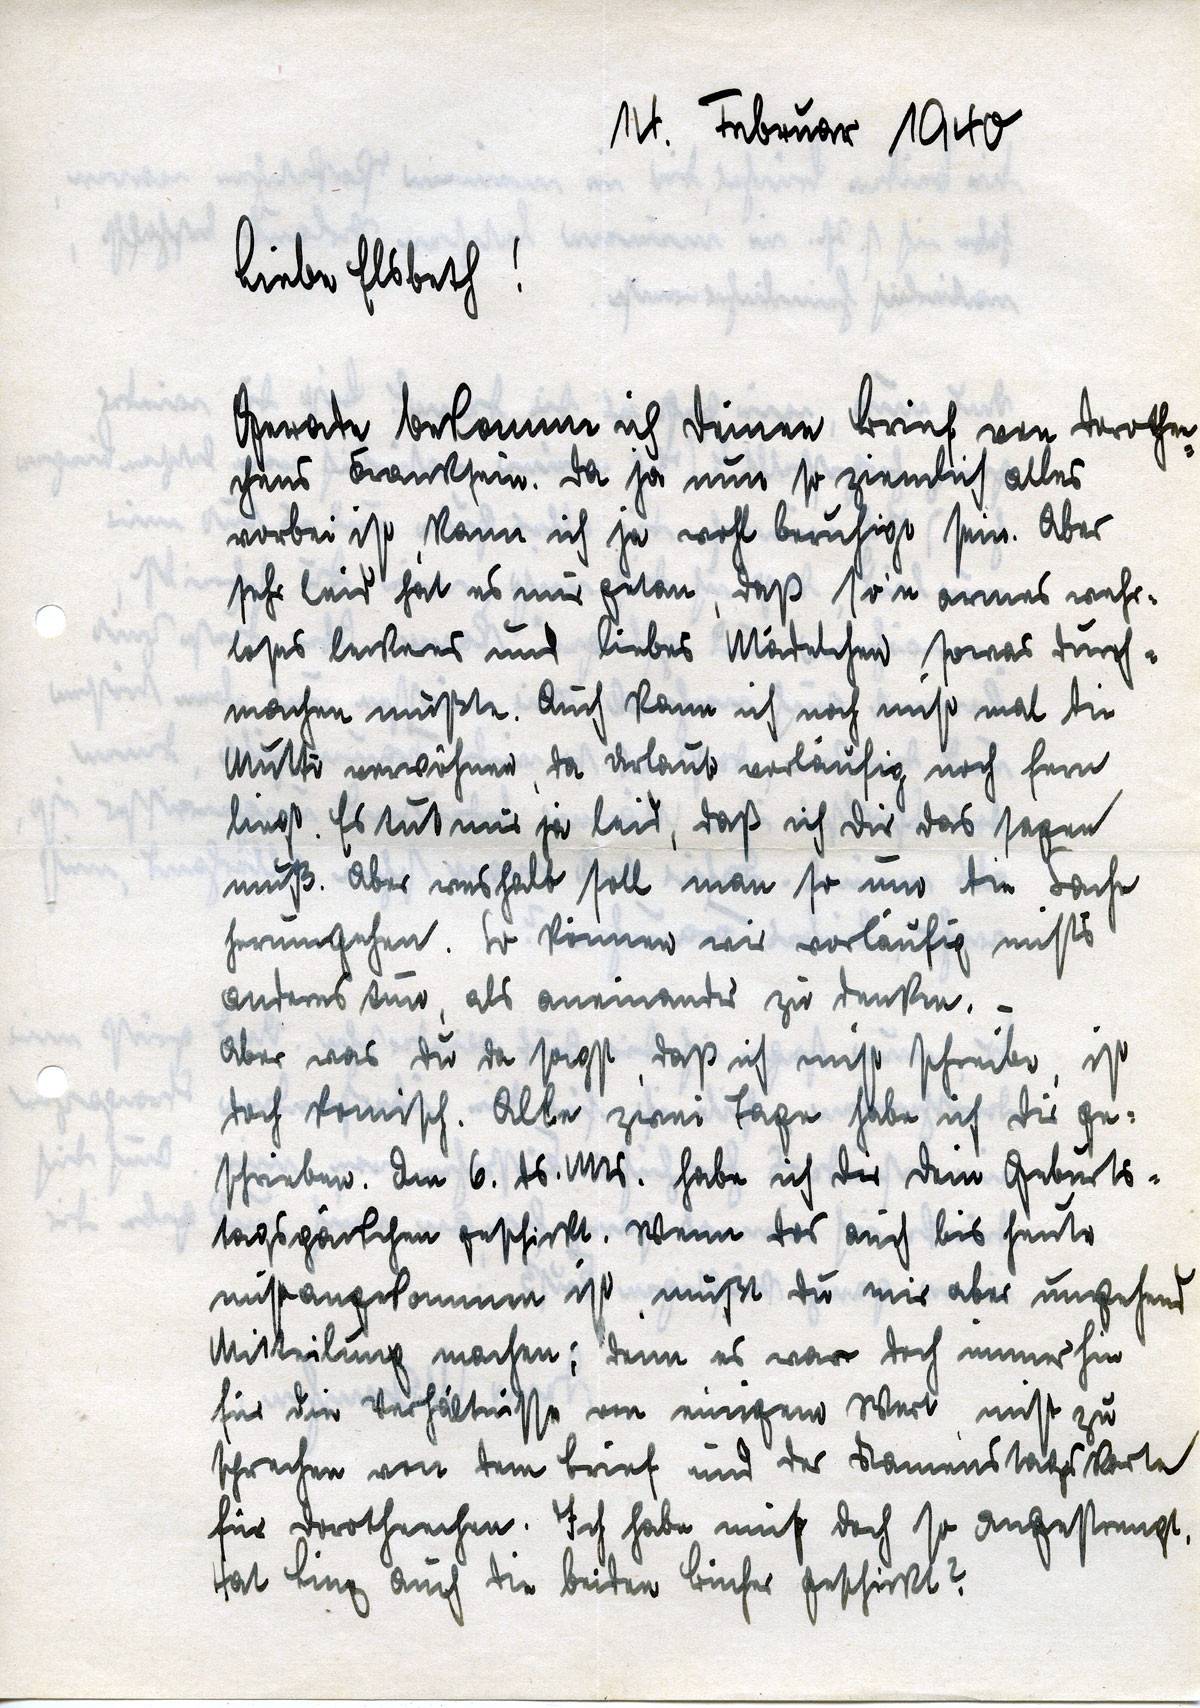 14. Februar 1940
Liebe Elsbeth!
Gerade bekomme ich Deinen Brief von Dorothee=
chens Kranksein. Da ja nun so ziemlich alles
vorbei ist, kann ich ja wohl beruhigt sein. Aber
sehr leid hat es mir getan, daß so'n armes wehr=
loses leckeres und liebes Mädelchen sowas durch=
machen mußte. Auch kann ich noch nicht mal die
Mutti verwöhnen, da Urlaub vorläufig noch fern
liegt. Es tut mir ja leid, daß ich Dir das sagen
muß. Aber weshalb soll man so um die Sache
herumgehen. So können wir vorläufig nichts
anderes tun, als aneinander zu denken. –
Aber was Du da sagst, daß ich nicht schreibe, ist
doch komisch. Alle zwei Tage habe ich Dir ge=
schrieben. Am 6. ds. Mts. habe ich Dir Dein Geburts=
tagspäckchen geschickt. Wenn das auch bis heute
nicht angekommen ist, mußt Du mir aber umgehend
Mitteilung machen; denn es war doch immerhin
für die Verhältnisse von einigem Wert, nicht zu
sprechen von dem Brief und der Namenstagskarte
für Dorotheechen. Ich habe mich doch so angestrengt.
Hat auch die beiden Bücher geschickt?